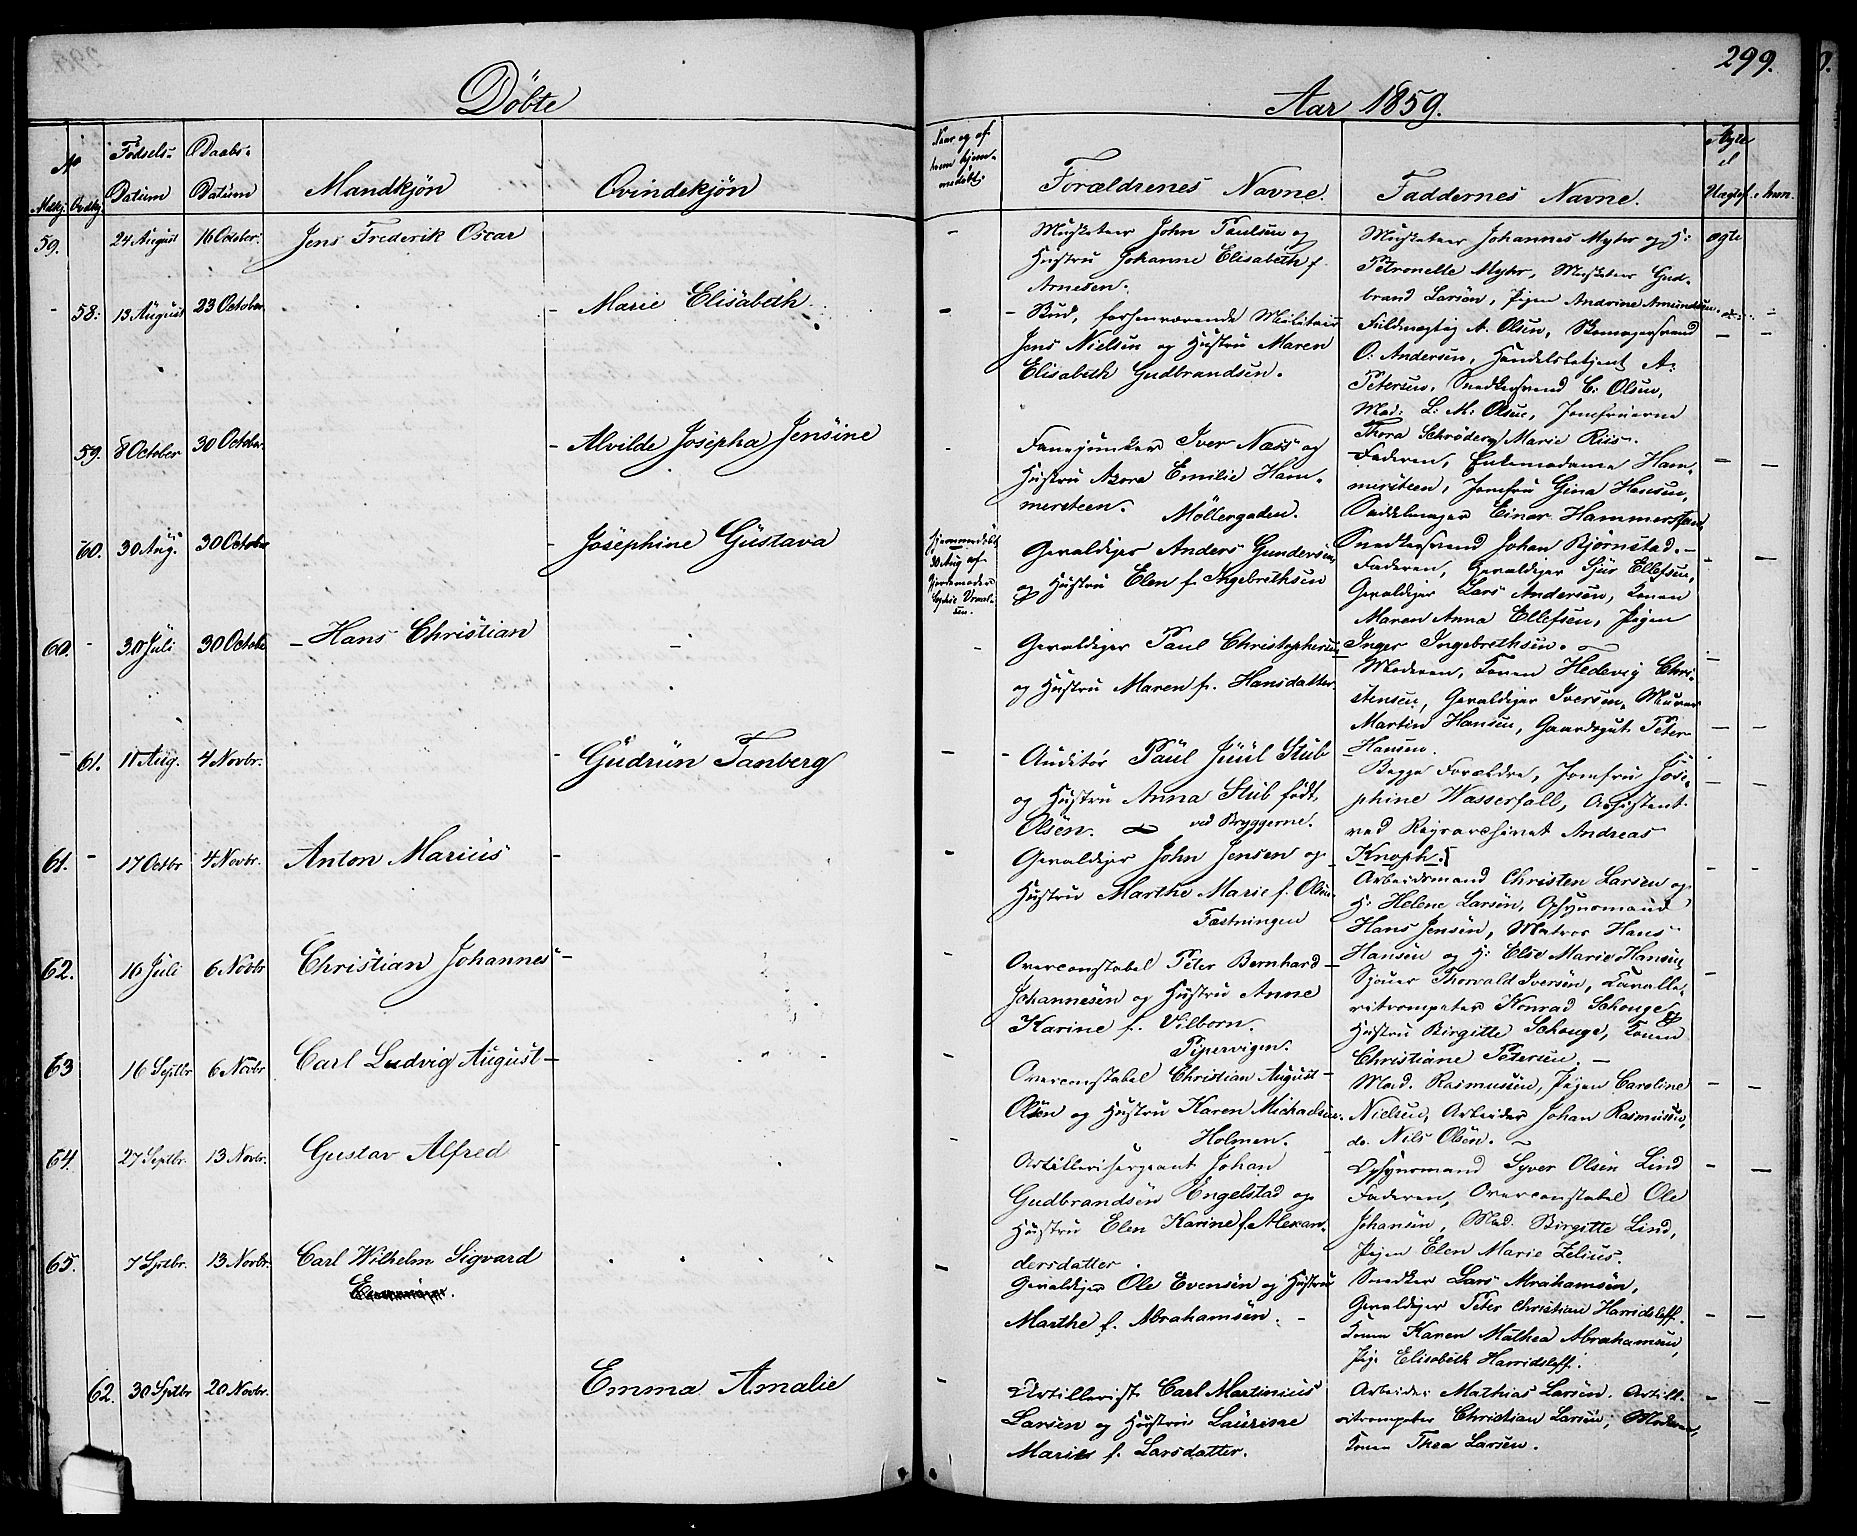 299.
Döbte
Aar 1859.
No
Mdkj. Qvdkj.
Födsels-
Datum
Daabs-
Datum
Mandkjön
Qvindekjön
Naar og af
hvem hjem-
medöbt.
Forældrenes Navne.
Faddernes Navne.
Ægte
el
Uægte.
Anm.
59. 24 August 16 October. Jens Frederik Oscar
Musketeer John Paulsen og
Hustru Johanne Elisabeth f.
Arnesen.
Musketeer Johannes Myhr og H:
Petronelle Myhr, Musketeer Gud-
brand Larsen, Pigen Andrine Amundsen.
ægte
58: 13 August 23 October. - Marie Elisabeth.
- Bud, forhenværende Militair
Jens Nielsen og Hustru Maren
Elisabeth Gudbrandsen.
Fuldmægtig A. Olsen, Skomagersvend
O. Andersen, Handelsbetjent A.
Petersen, Snedkersvend C. Olsen,
Mad: L: M: Olsen, Jomfruerne
Thora Schröder, Marie Riis.
59. 8 October 30 October. - Alvilde Josepha Jensine
Fanejunker Iver Næss og
Hustru Azora Emilie Ham-
mersteen. Möllergaden.
Faderen, Enkemadame Ham-
mersteen, Jomfru Gina Hansen,
Sadelmager Einar Hammersteen,
Snedkersvend Johan Bjørnstad. -
60. 30 Aug. 30 October - Josephine Gustava
Hjemmedöbt
30 Aug af
Gjordemoder
Sophie
Gevaldiger Anders Gundersen
og Hustru Elen f. Ingebrethsen
Faderen, Gevaldiger Sjur Ellefsen,
Gevaldiger Lars Andersen, Konen
Maren Anna Ellefsen, Pigen
Inger Ingebrethsen.
60. - 30 Juli 30 October - Hans Christian
Gevaldiger Paul Christophersen
og Hustru Maren f. Hansdatter.
Moderen, Konen Hedevig Chri-
stensen, Gevaldiger Iversen, Murer
Martin Hansen, Gaardsgut Peter
Hansen.
- 61. 11 Aug. 4 Novbr. - Gudrun Tanberg
- Auditör Paul Juul Stub
og Hustru Anna Stub födt
Olsen. ved Bryggerne.
Begge Forældre, Jomfru Jose-
phine Wasserfall, Assistent
ved Andreas
Knoph.
61. - 17 Octbr 4 Novbr. Anton Marius -
Gevaldiger John Jensen og
Hustru Marthe Marie f. Olsen
Fæstningen
Arbeidsmand Christen Larsen og
H: Helene Larsen, Opsynsmand
Hans Jensen, Matros Hans
Hansen og H: Else Marie Hansen
62. 16 Juli 6 Novbr Christian Johannes -
Overconstabel Peter Bernhard
Johannesen og Hustru Anne
Karine f. Vilborn.
Pipervigen.
Sjouer Thorvald Iversen, Cavalle-
ritrompeter Konrad Schouge og
Hustru Birgitte Schouge, Konen
Christiane Petersen. -
63 16 Septbr 6 Novbr Carl Ludvig August -
Overconstabel Christian August
Olsen og Hustru Karen Michaelsen.
Holmen.
Mad. Rasmussen, Pigen Caroline
Nielsen, Arbeider Johan Rasmussen,
do. Nils Olsen.
64. 27 Septbr. 13 Novbr. Gustav Alfred -
Artillerisergeant Johan
Gudbrandsen Engelstad og
Hustru Elen Karine f. Alexan-
dersdatter.
Opsynsmand Syver Olsen Lind
Faderen, Overconstabel Ole
Johansen, Mad. Birgitte Lind,
Pigen Elen Marie Zelius.
65. 7 Septbr. 13 Novbr. Carl Wilhelm Sigvard
Gevaldiger Ole Evensen og Hustru
Marthe f. Abrahamsen. -
Snedker Lars Abrahamsen,
Gevaldiger Peter Christian Harridsleff.
Konen Karen Mathea Abrahamsen,
Pige Elisabeth Harridsleff.
62. 30 Septbr 20 Novbr. Emma Amalie
Artillerist Carl Martinius
Larsen og Hustru Laurine
Marie f. Larsdatter.
Arbeider Mathias Larsen. Artill-
eritrompeter Christian Larsen, Moderen,
Konen Thea Larsen.